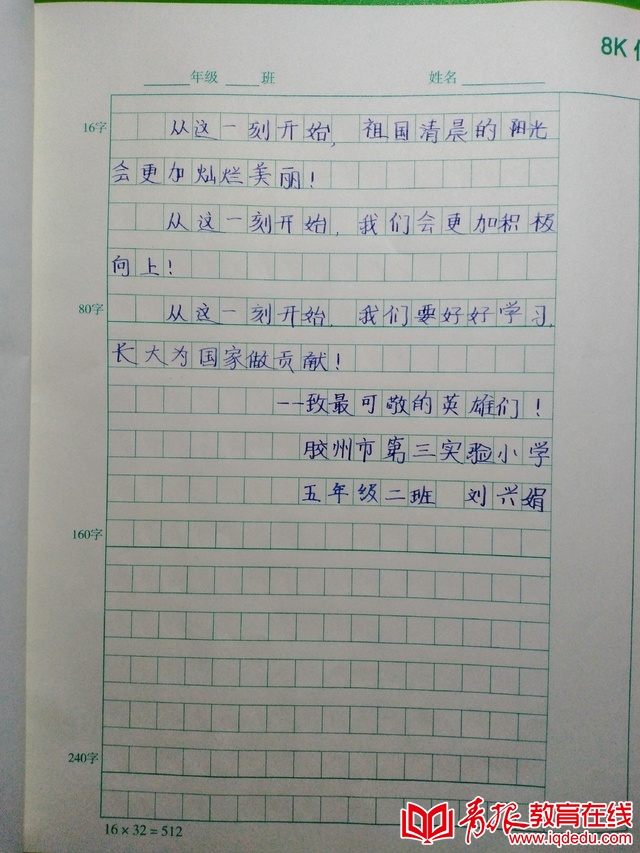 8K
年级 班 姓名
16字
从这一刻开始，祖国清晨的阳光
会更加灿烂美丽！
从这一刻开始，我们会更加积极
向上！
80字
从这一刻开始，我们要好好学习，
长大为国家做贡献！
——致最可敬的英雄们！
胶州市第三实验小学
五年级二班 刘兴娟
160字
240字
16×32=512
青报教育在线
www.iqdedu.com